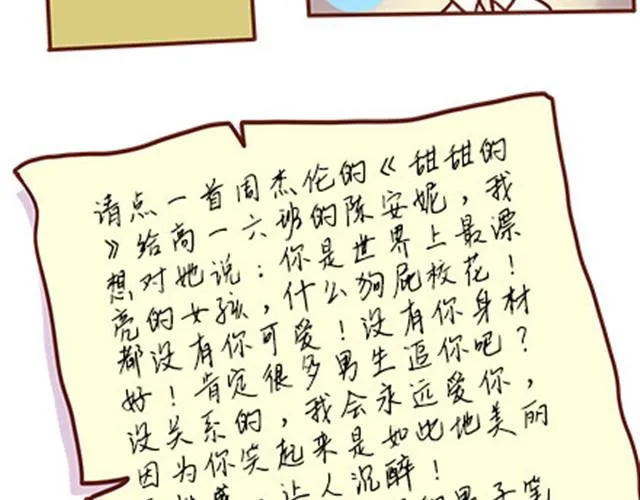 请点一首周杰伦的《甜甜的
》给高一六班的陈安妮，我
想对她说：你是世界上最漂
亮的女孩，什么狗屁校花！
都没有你可爱！没有你身材
好！肯定很多男生追你吧？
没关系的，我会永远爱你，
因为你笑起来是如此地美丽
让人沉醉！